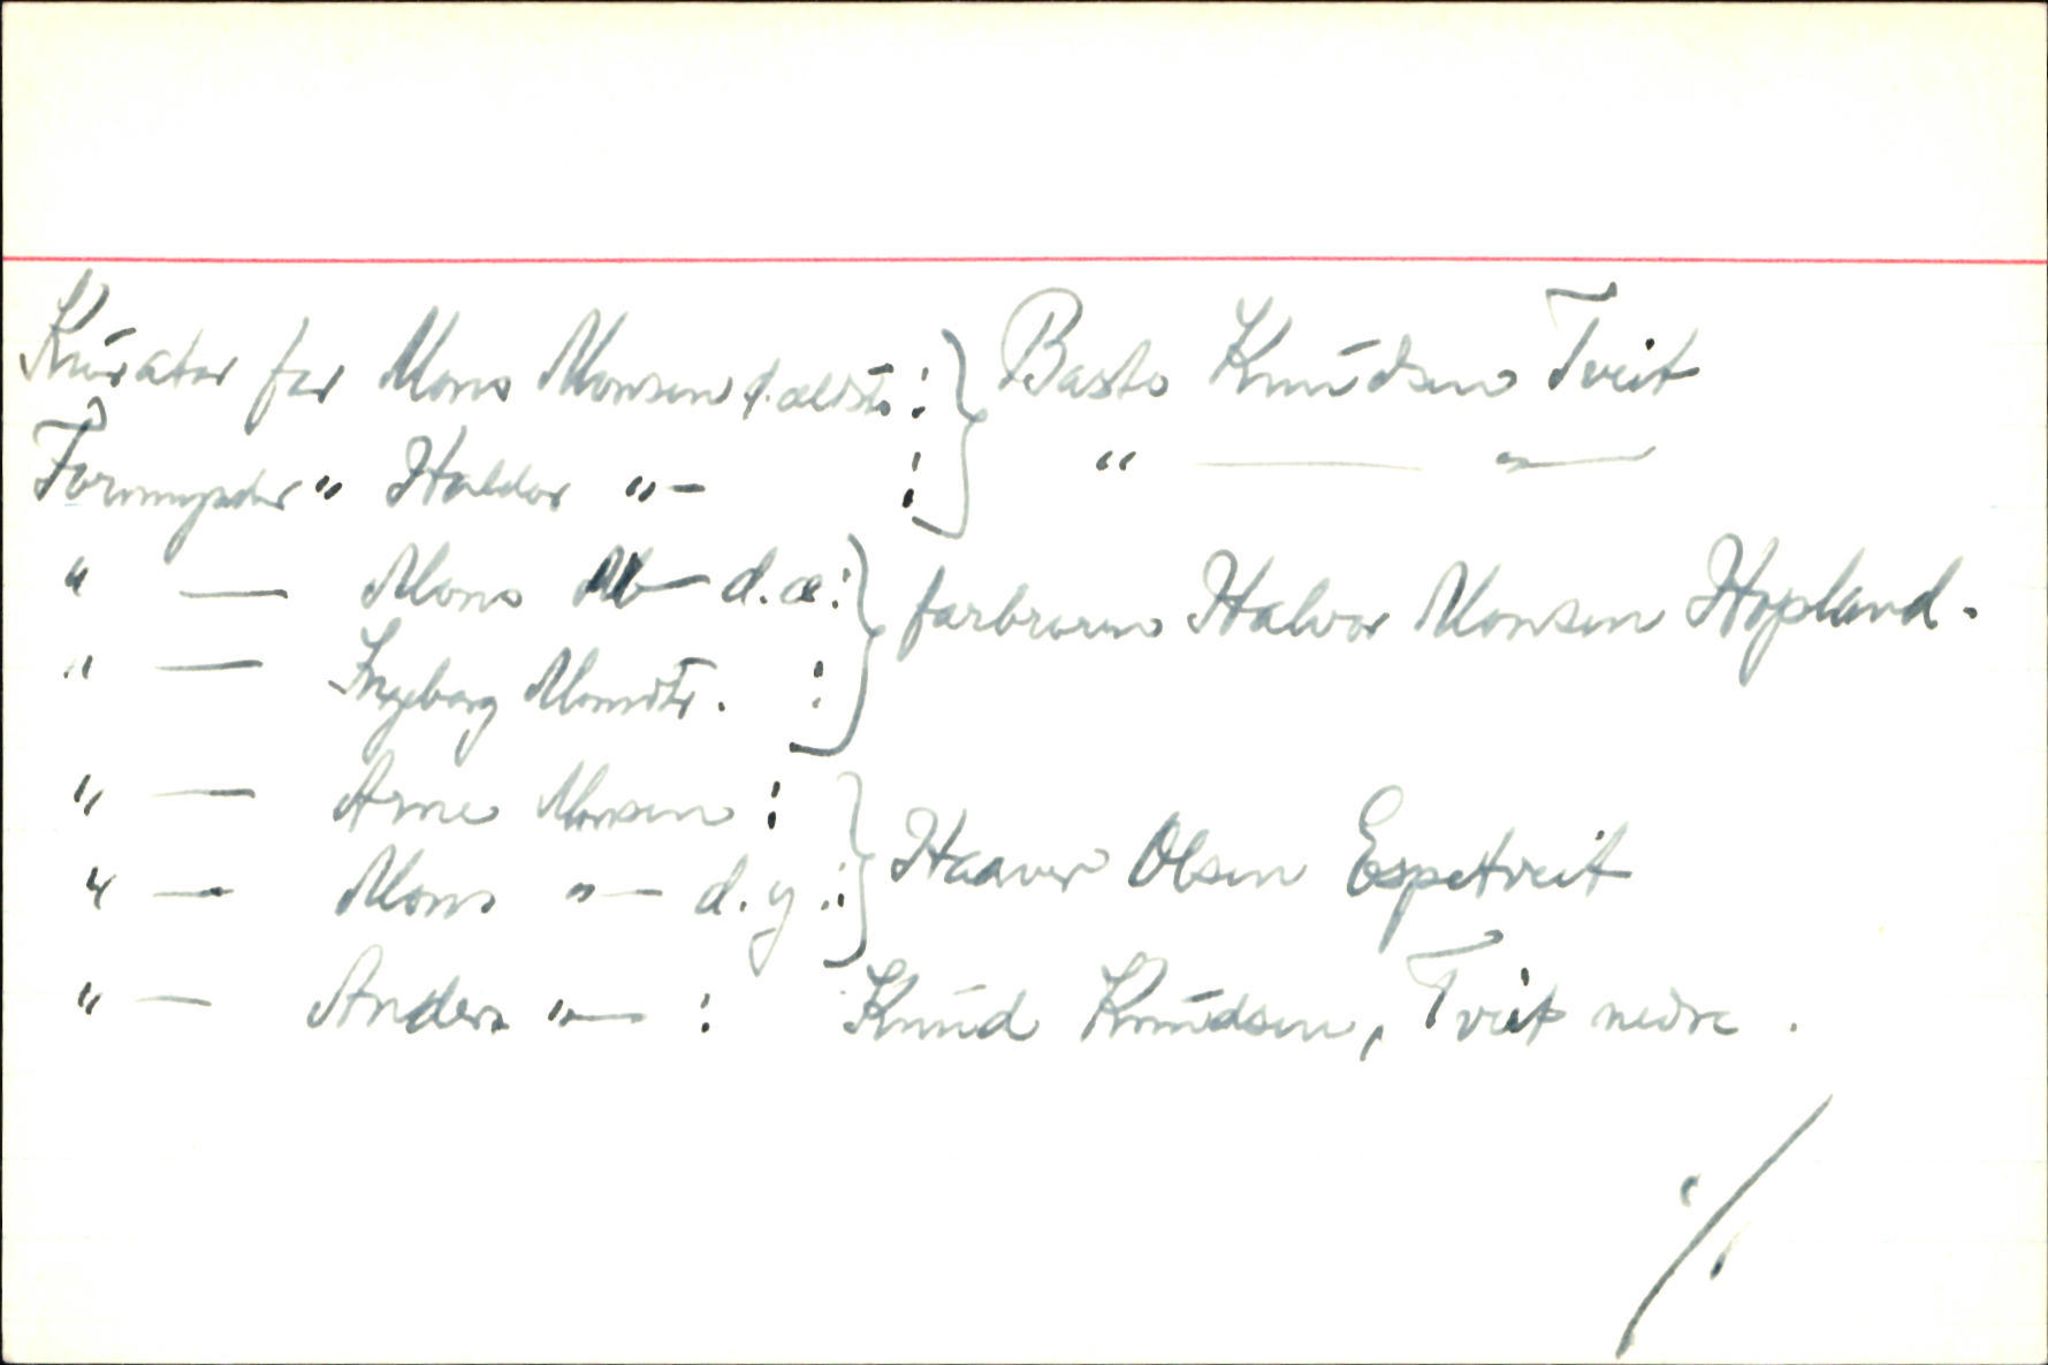 Kurator for Mons Monsen d. ældste : } Baste Knudsen Tveit
Formynder " Haldor " — : } " — " —
" — Mons M— d. æ : } farbroren Halvor Monsen Hopland.
" — Ingeborg Monsdtr. : }
" — Arne Monsen : } Haaver Olsen Espetveit
" — Mons " — d. y : }
" — Anders " — : Knud Knudsen, Tveit nedre .
·/.